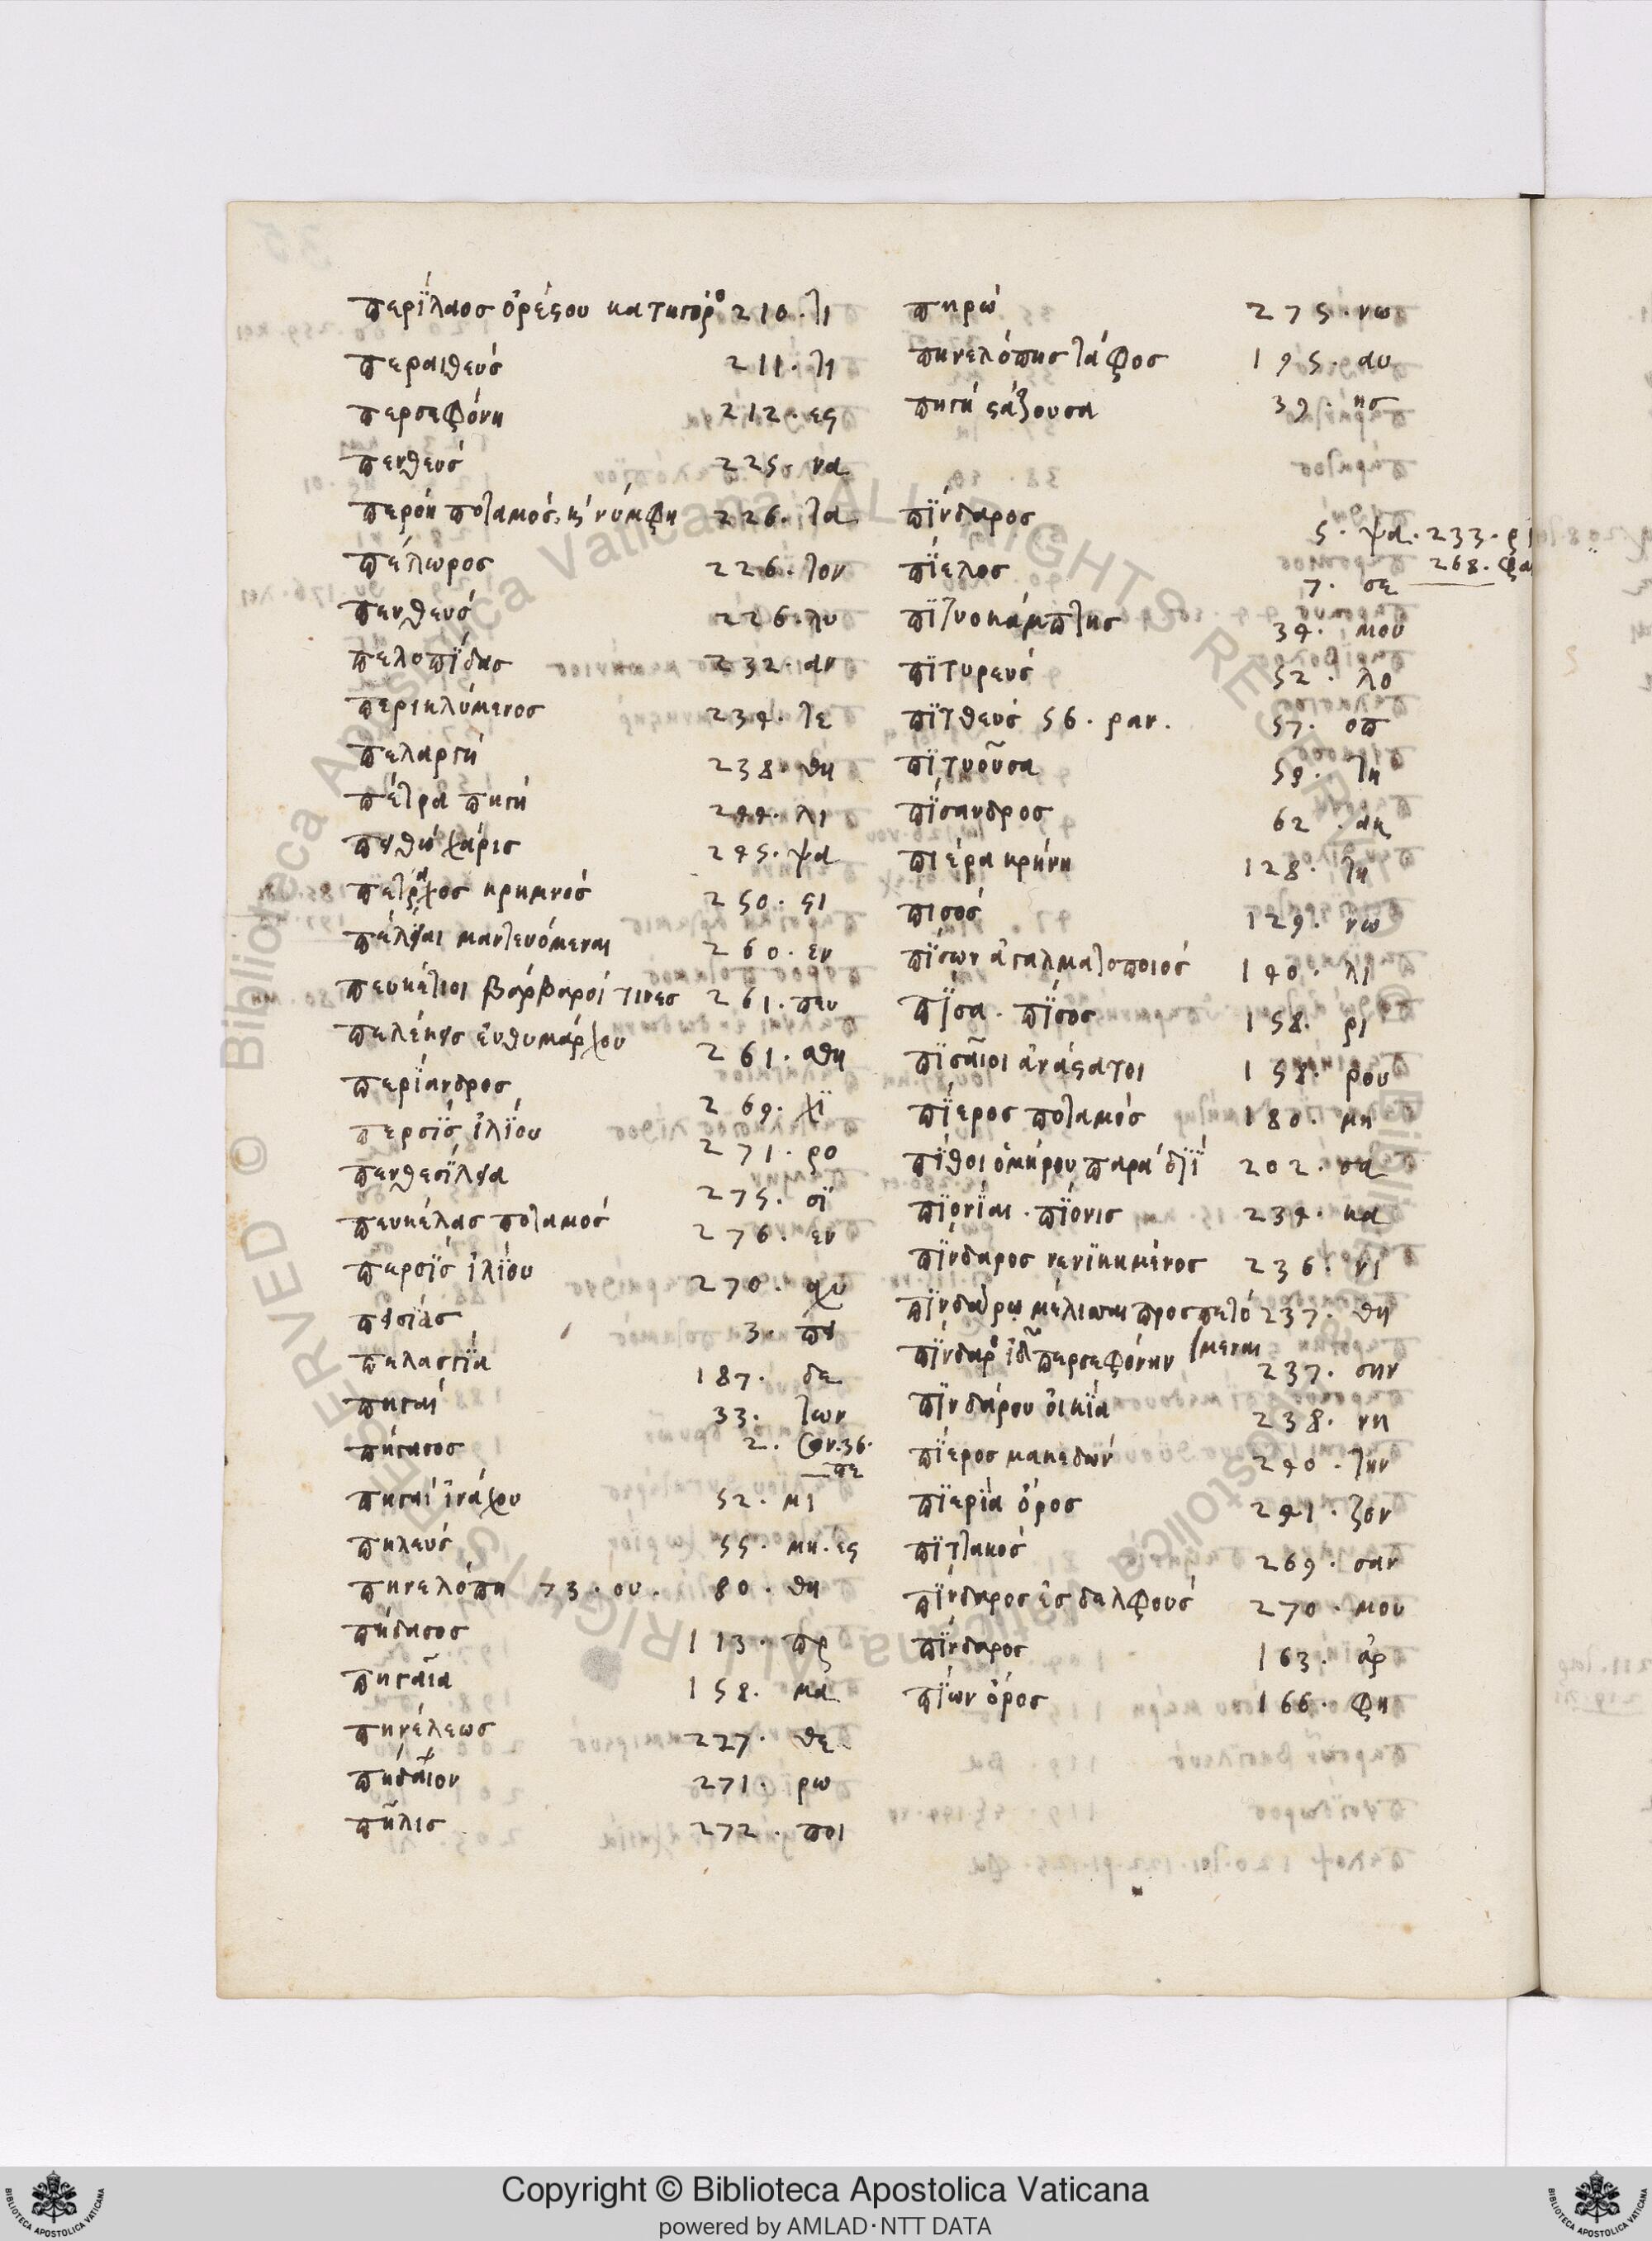 περΐλαοσ ὀρέστου κατηγορο 210. τι
περαιθεύσ 211. τι
περσεφόνη 212. εσ
πενθεύσ 225. να
περόη ποταμόσ, κ νύμφη 226. τα
πέλωροσ 226. τον
πενθευσ 226. λυ
πελοπΐδασ 232. αν
περικλύμενοσ 234. τε
πελαργή 238. θη
πέτρα πηγή 244. λι
πειθὼ χάρισ 245. ψα
πετραχοσ κρημνόσ 250. στι
πέλειαι μαντευόμεναι 260. εν
πευκέτιοι βάρβαροί τινεσ 261. πευ
πελέησ εὐθυμάρχου 261. αθη
περΐανδροσ 269. χΐ
περσΐσ ἰλΐου 271. ρο
πενθεσΐλεια 275. σϊ
πευκέλασ ποταμόσ 276. εν
περσΐσ ἰλΐου 270. χυ
πεισιάσ 3. πει
πελασγΐα 187. δε
πηγαί 33. των
πήγασοσ 2. ων. 36. πε
πηγαί ἰνάχου 52. μι
πηλεύσ 55. μη. εσ
πηνελόπη 73. ου. 80. θη
πήδασοσ 113. πρ
πηγαῖα 158. μα
πηνέλεωσ 227. θε
πήδαιον 271. ρω
πῆλισ 272. ποι
πηρώ 275. νω
πηνελόπησ τάφοσ 195. αυ
πηγή στάζουσα 39. ησ
πΐνδαροσ 5. ψα. 233. ρ
268. φα
πΐελοσ 7. σε
πϊτυοκάμπτησ 34. μου
πϊτυρεύσ 52. λο
πϊτθεύσ 56. ραν. 57. οπ
πϊτυοῦσα 59. τη
πΐσανδροσ 62. ακ
πιέρα κρήνη 128. τη
πισοσ 129. νω
πΐσων ἀγαλματοποιόσ 140. λι
πΐσα. πΐσοσ 158. ρι
πϊσαῖοι ἀνάστατοι 158. ρου
πΐεροσ ποταμόσ 180. μη
πΐθοι ὁμήρου παρά διΐ 202. σα
πϊονΐαι. πΐονισ 234. κα
πΐνδαροσ νενϊκημένοσ 236. νι
πϊνδάρω μέλισσαι προσπετό 237. θη
μεναι
πΐνδαρο ἰδ περσεφόνην 237. σην
πϊνδάρου ὀικΐα 238. νη
πΐεροσ μακεδών 240. την
πϊερΐα ὄροσ 241. ζον
πϊττακόσ 269. σαν
πΐνδαροσ ἐσ δελφούσ 270. μου
πΐνδαροσ 163. ἀρ
πΐων ὄροσ 166. φη
Copyright © Biblioteca Apostolica Vaticana
powered by AMLAD·NTT DATA